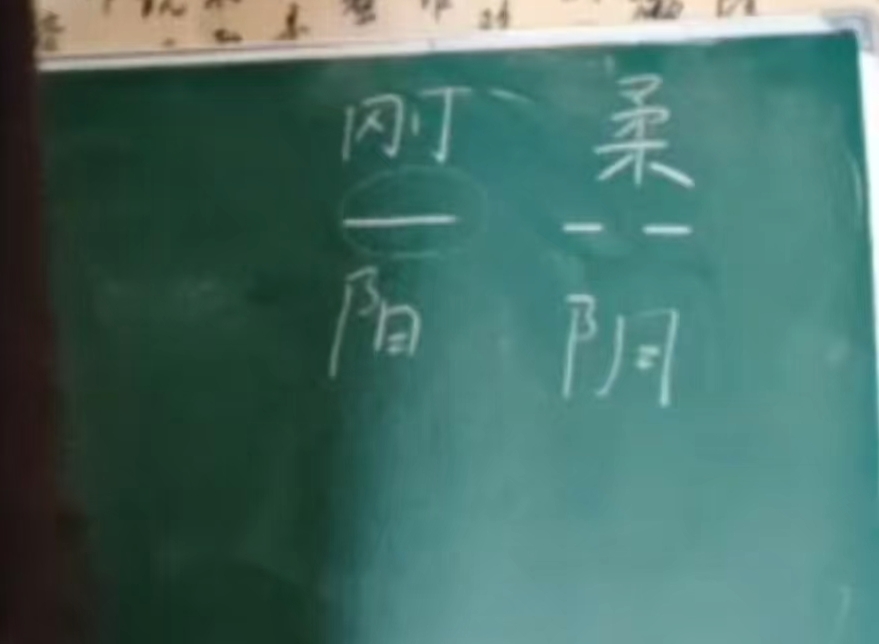 刚 柔
— - -
阳 阴